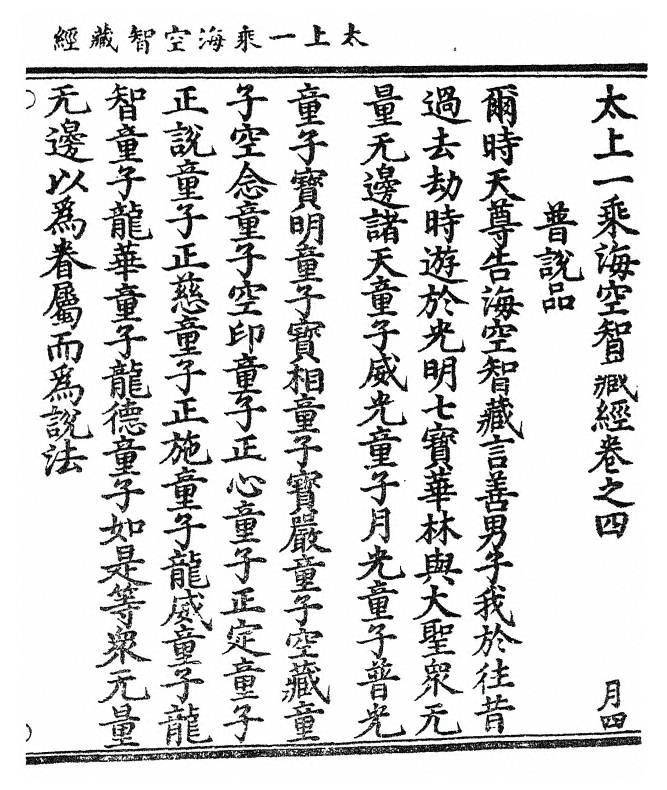 經藏智空海乘一上太
太上一乘海空智藏經卷之四
月四
普說品
爾時天尊告海空智藏言善男子我於往昔
過去劫時遊於光明七寶華林與大聖眾无
量无邊諸天童子威光童子月光童子普光
童子寶明童子寶相童子寶嚴童子空藏童
子空念童子空印童子正心童子正定童子
正說童子正慈童子正施童子龍威童子龍
智童子龍華童子龍德童子如是等眾无量
无邊以為眷屬而為說法